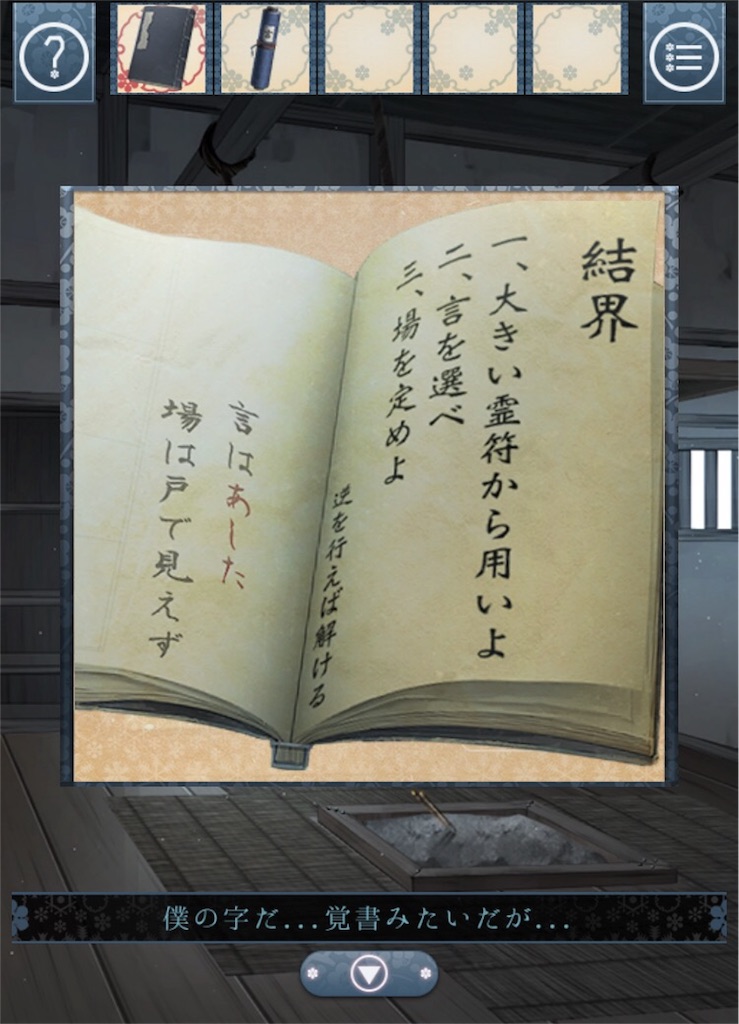 結界
一、大きい霊符から用いよ
二、言を選べ
三、場を定めよ
逆を行えば解ける
言はあした
場は戸で見えず
僕の字だ...覚書みたいだが...